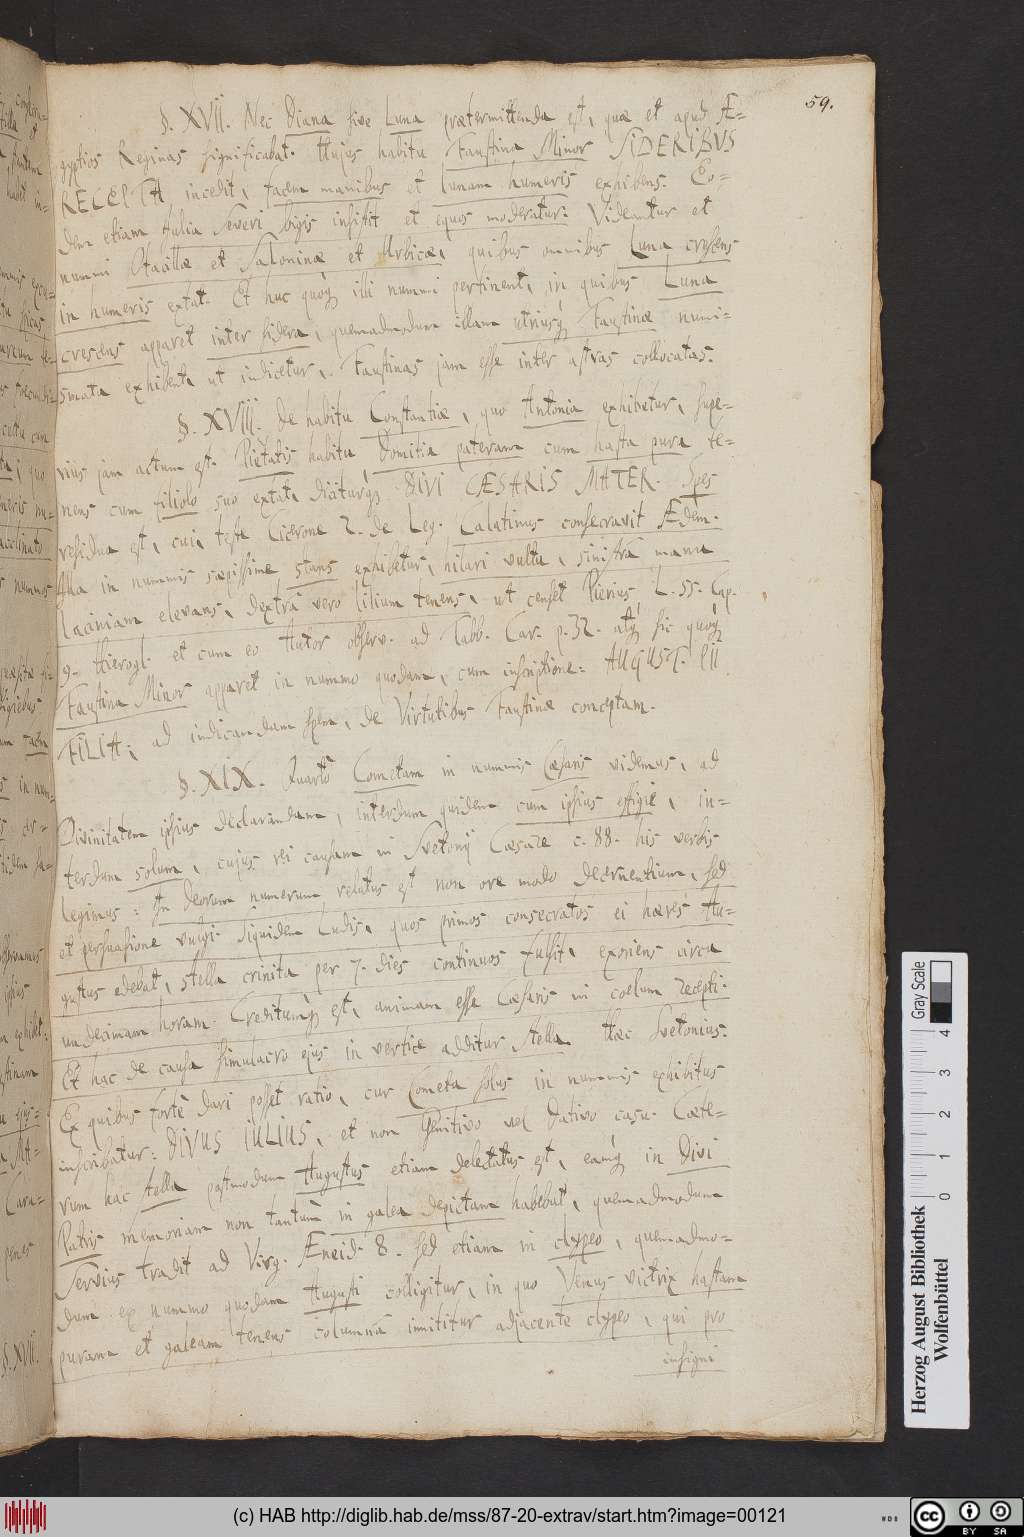 59.
§. XVII. Nec Diana sive Luna prætermittenda est, quæ et apud Æ=
gyptios Reginas significabat. Hujus habitu Faustina Minor SIDERIBVS
RECEPTA incedit, facem manibus et lunam humeris exhibens. Eo=
dem etiam Julia Severi bigis insistit et equos moderatur. Videantur et
nummi Otacillæ et Saloninæ et Urbicæ, quibus omnibus Luna crescens
in humeris extat. Et huc quoq; illi nummi pertinent, in quibus Luna
crescens apparet inter sidera, quemadmodum illam utriusq; Faustinæ numi=
smata exhibent, ut indicetur, Faustinas jam esse inter astras collocatas.
§. XVIII. De habitu Constantiæ, quo Antonia exhibetur, supe=
rius jam actum est. Pietatis habitu Domitia pateram cum hasta pura te=
nens cum filiolo suo extat, diciturq; DIVI CÆSARIS MATER. Spes
residua est, cui, teste Cicerone 2. de Leg. Calatinus consecravit Ædem.
Illa in nummis sæpissime stans exhibetur, hilari vultu, sinistrâ manu
laciniam elevans, dextrâ vero lilium tenens, ut censet Pierius L. 55. Cap.
9. Hierogl. et cum eo Autor observ. ad Tabb. Car. p. 32. atq; sic quoq;
Faustina Minor apparet in nummo quodam, cum inscriptione: AUGUST. PII
FILIA; ad indicandam spem, de Virtutibus Faustinæ conceptam.
§. XIX. Quartò Cometam in nummis Cæsaris videmus, ad
Divinitatem ipsius declarandam, interdum quidem cum ipsius effigie, in=
terdum solum, cujus rei causam in Svetonij Cæsare c. 88. his verbis
legimus: In Deorum numerum relatus est non ore modo decernentium, sed
et persuasione vulgi. Siquidem Ludis, quos primos consecratos ei hæres Au=
gustus edebat, stella crinita per 7. dies continuos fulsit, exoriens circa
undecimam horam. Creditumq; est, animam esse Cæsaris in coelum recepti.
Et hac de causa simulacro ejus in vertice additur stella. Hæc Svetonius.
Ex quibus fortè dari posset ratio, cur Cometa solus in nummis exhibitus
inscribatur: DIVUS IULIUS, et non Genitivo vel Dativo casu. Cæte=
rum hac stella postmodum Augustus etiam delectatus est, eamq; in Divi
Patris memoriam non tantùm in galea depictam habebat, quemadmodum
Servius tradit ad Virg. Æneid. 8. sed etiam in clypeo, quemadmo=
dum ex nummo quodam Augusti colligitur, in quo Venus victrix hastam
puram et galeam tenens columnâ innititur adjacente clypeo, qui pro
insigni
Herzog August Bibliothek
Wolfenbüttel
Gray Scale
0 1 2 3 4
(c) HAB http://diglib.hab.de/mss/87-20-extrav/start.htm?image=00121
cc BY SA